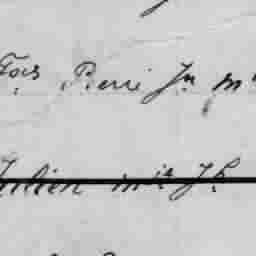 Fois Pierre Jn m
Julien mie Jh